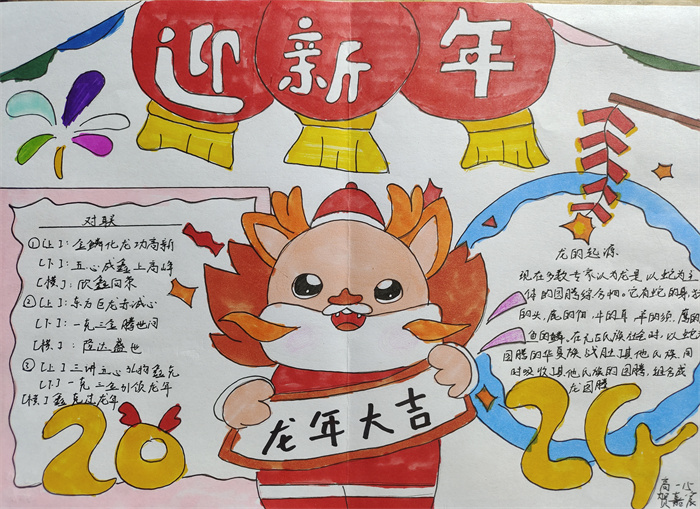 迎新年
对联
①(上): 金鳞化龙功高新
(下): 五心成鑫上高峰
(横): 欣鑫向荣
②(上): 东方巨龙赤诚心
(下): 一元三金腾世间
(横): 隆达盛世
③(上) 三讲五心弘扬鑫元
(下) 一元三金外俱龙年
(横) 鑫元过龙年
龙年大吉
龙的起源
现在多数专家认为龙是以蛇为主
体的图腾综合物。它有蛇的身、
的头、鹿的角、牛的耳、羊的须、鹰的
鱼的鳞。在元氏族社会时,以蛇为
图腾的华夏族战胜其他民族,同
时吸收其他民族的图腾,组合成
龙图腾
2024
高一15
贺嘉辰